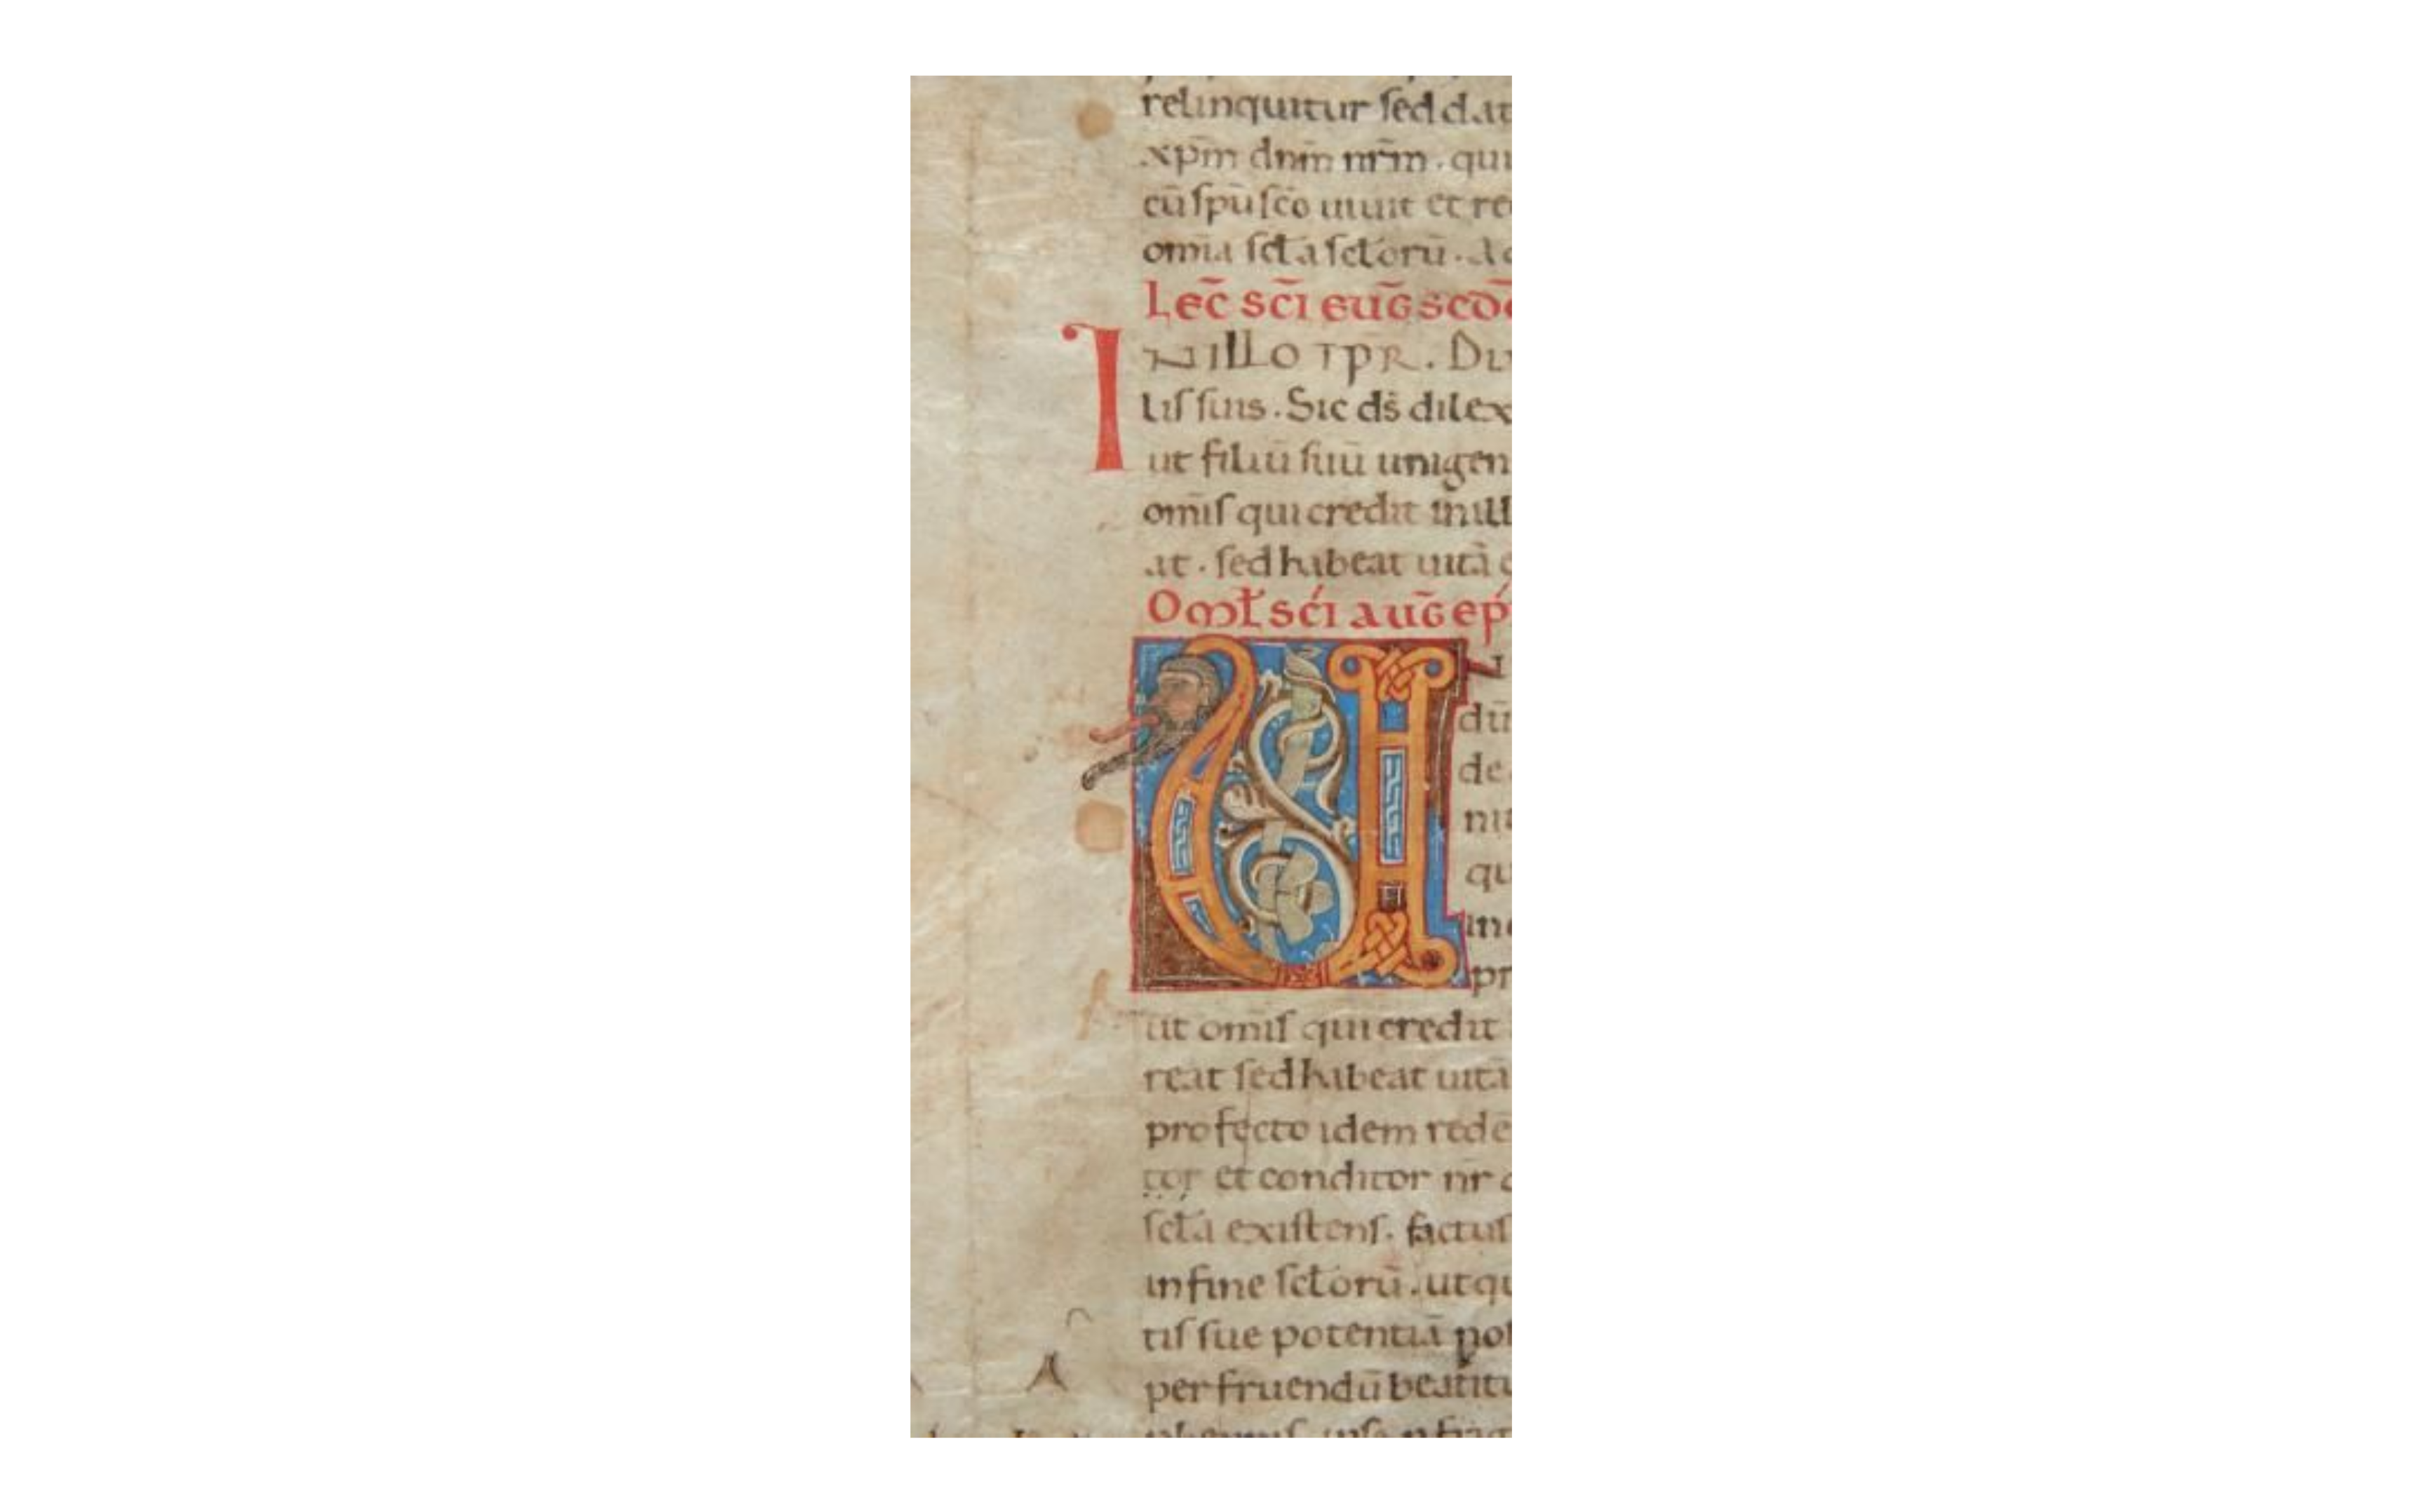 relinquitur sed dat
xp̄m dn̄m nr̄m . qui
cū spū sc̄o uiuit et re
om̄ia scł̄a scł̄orū . A
Lec̄ sc̄i euḡ scd̄
IN ILLO TP̄R . Di
lis suis . Sic ds̄ dilex
ut filiū suū unigen
om̄is qui credit in ill
at . sed habeat uitā
Omł̄ sc̄i auḡ ep̄
U N
dū
de
nit
qu
ine
pr
ut om̄is qui credit
reat sed habeat uitā
profecto idem redē
tor et conditor nr̄
scł̄a existens . factus
in fine scł̄orū . ut qu
tis sue potentiā
per fruendū beatitu